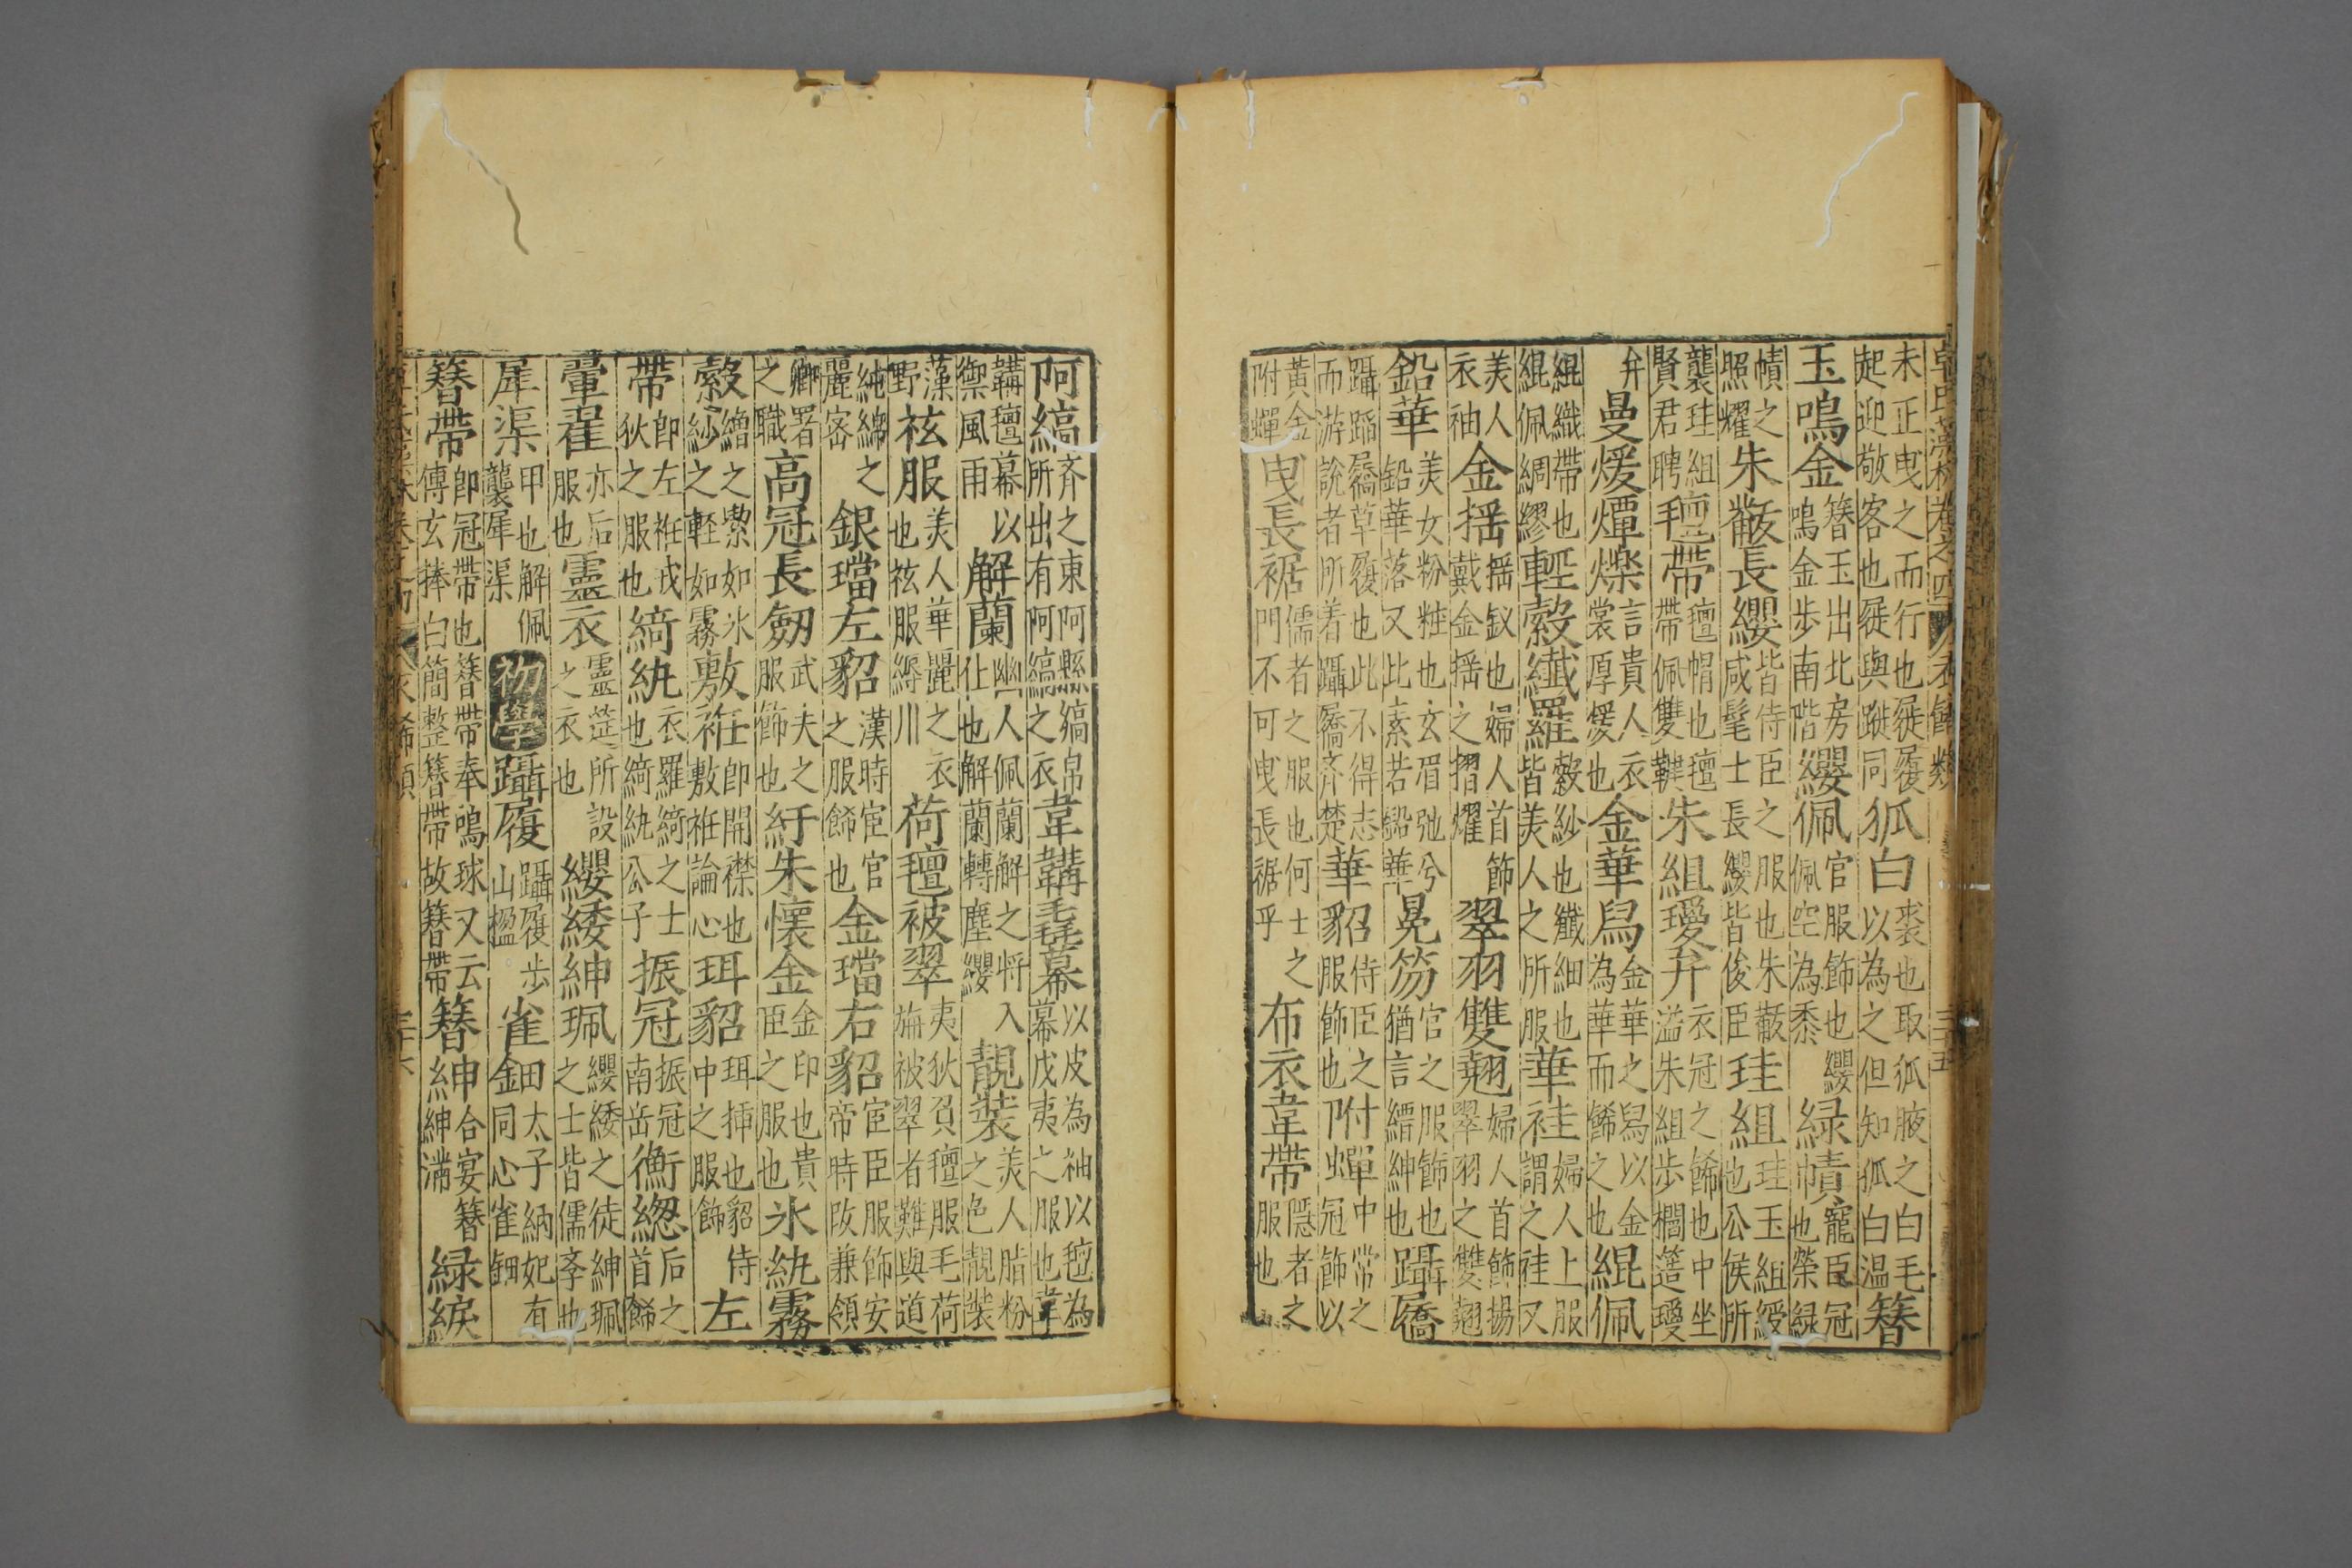 卓氏藻林卷之四 衣飾類 三十五
未正曳之而行也屣履起迎敬客也屣與蹝同 狐白 裘也取狐腋之白毛以為之但知狐白溫 簪
玉鳴金 簪玉出北房鳴金步南階 纓佩 官服飾也纓佩空為黍 綠幘 寵臣冠巾也榮綠
幘之照耀 朱黻長纓 皆侍臣之服也朱黻咸髦士長纓皆俊臣 珪組 珪玉組綬也公侯所
襲珪組賢君聘 氊帶 氊帽也氊帶佩雙鞬 朱組璦弁 衣冠之餙也中坐溢朱組步櫩簉璦
弁 曼煖燂爍 言貴人衣裳厚煖也 金華舄 金華之舄以金為華而餙之也 緄佩
緄織帶也緄佩綢繆 輕縠纎羅 縠紗也纎細也皆美人之所服 華袿 婦人上服謂之袿又
美人衣袖 金揺 揺釵也婦人首節戴金揺之摺耀 翠羽雙翹 婦人首飾揚翠羽之雙翹
鉛華 美女粉粧也玄眉弛兮鉛華落又此素若鉛華 冕笏 官之服飾也猶言縉紳也 躡屩
躡蹈屩草履也此不得志而游說者所着躡屩齐楚 華貂 侍臣之服飾也 附蟬 中常之冠飾以
黃金附蟬 曳長裾 儒者之服也何士之門不可曳長裾乎 布衣韋帶 隱者之服也
阿縞 齐之東阿縣縞帛所出有阿縞之衣 韋韝毳幕 以皮為袖以氊為幕戊夷之服也韋
韝氊幕以禦風雨 解蘭 幽人佩蘭解之将入仕也解蘭轉塵纓 靚裝 美人脂粉之色靚裝
藻野 袨服 美人華麗之衣也袨服縟川 荷氊被翠 夷狄負氊服毛荷旃被翠者難與道
純綿之麗密 銀璫左貂 漢時宦官之服餙也 金璫右貂 宦臣服飾安帝時改兼領
卿署之職 高冠長劒 武夫之服飾也 紆朱懷金 金印也貴臣之服也 氷紈霧
縠 繒之素如氷紗之輕如霧 敷衽 即開襟也敷衽論心 珥貂 珥揷也貂侍中之服飾 左
帶 即左衽戎狄之服也 綺紈 衣羅綺之士也綺紈公子 振冠 振冠南岳 衡緫 后之首餙
翬翟 亦后服也 靈衣 靈筵所設之衣也 纓緌紳珮 纓緌之徒紳珮之士皆儒斈也
犀渠 甲也解佩襲犀渠 初學 躡履 躡履步山楹 雀鈿 太子納妃有同心雀鈿
簪帶 即冠帶也簪帶奉鳴球又云傅玄捧白簡整簪帶故簪帶 簪紳 合宴簪紳滿 綠綟